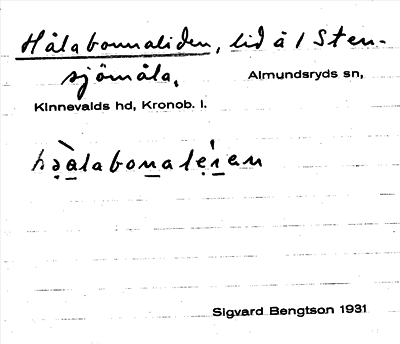 Hålabonnaliden, lid å 1 Sten-
sjömåla,
Almundsryds sn,
Kinnevalds hd, Kronob. l.
hə̣̀a̠labon̠alẹ́ı̠en
Sigvard Bengtson 1931